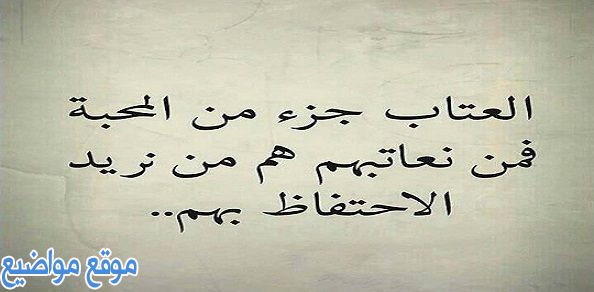 العتاب جزء من المحبة
فمن نعاتبهم هم من نريد
الاحتفاظ بهم..
موقع مواضيع